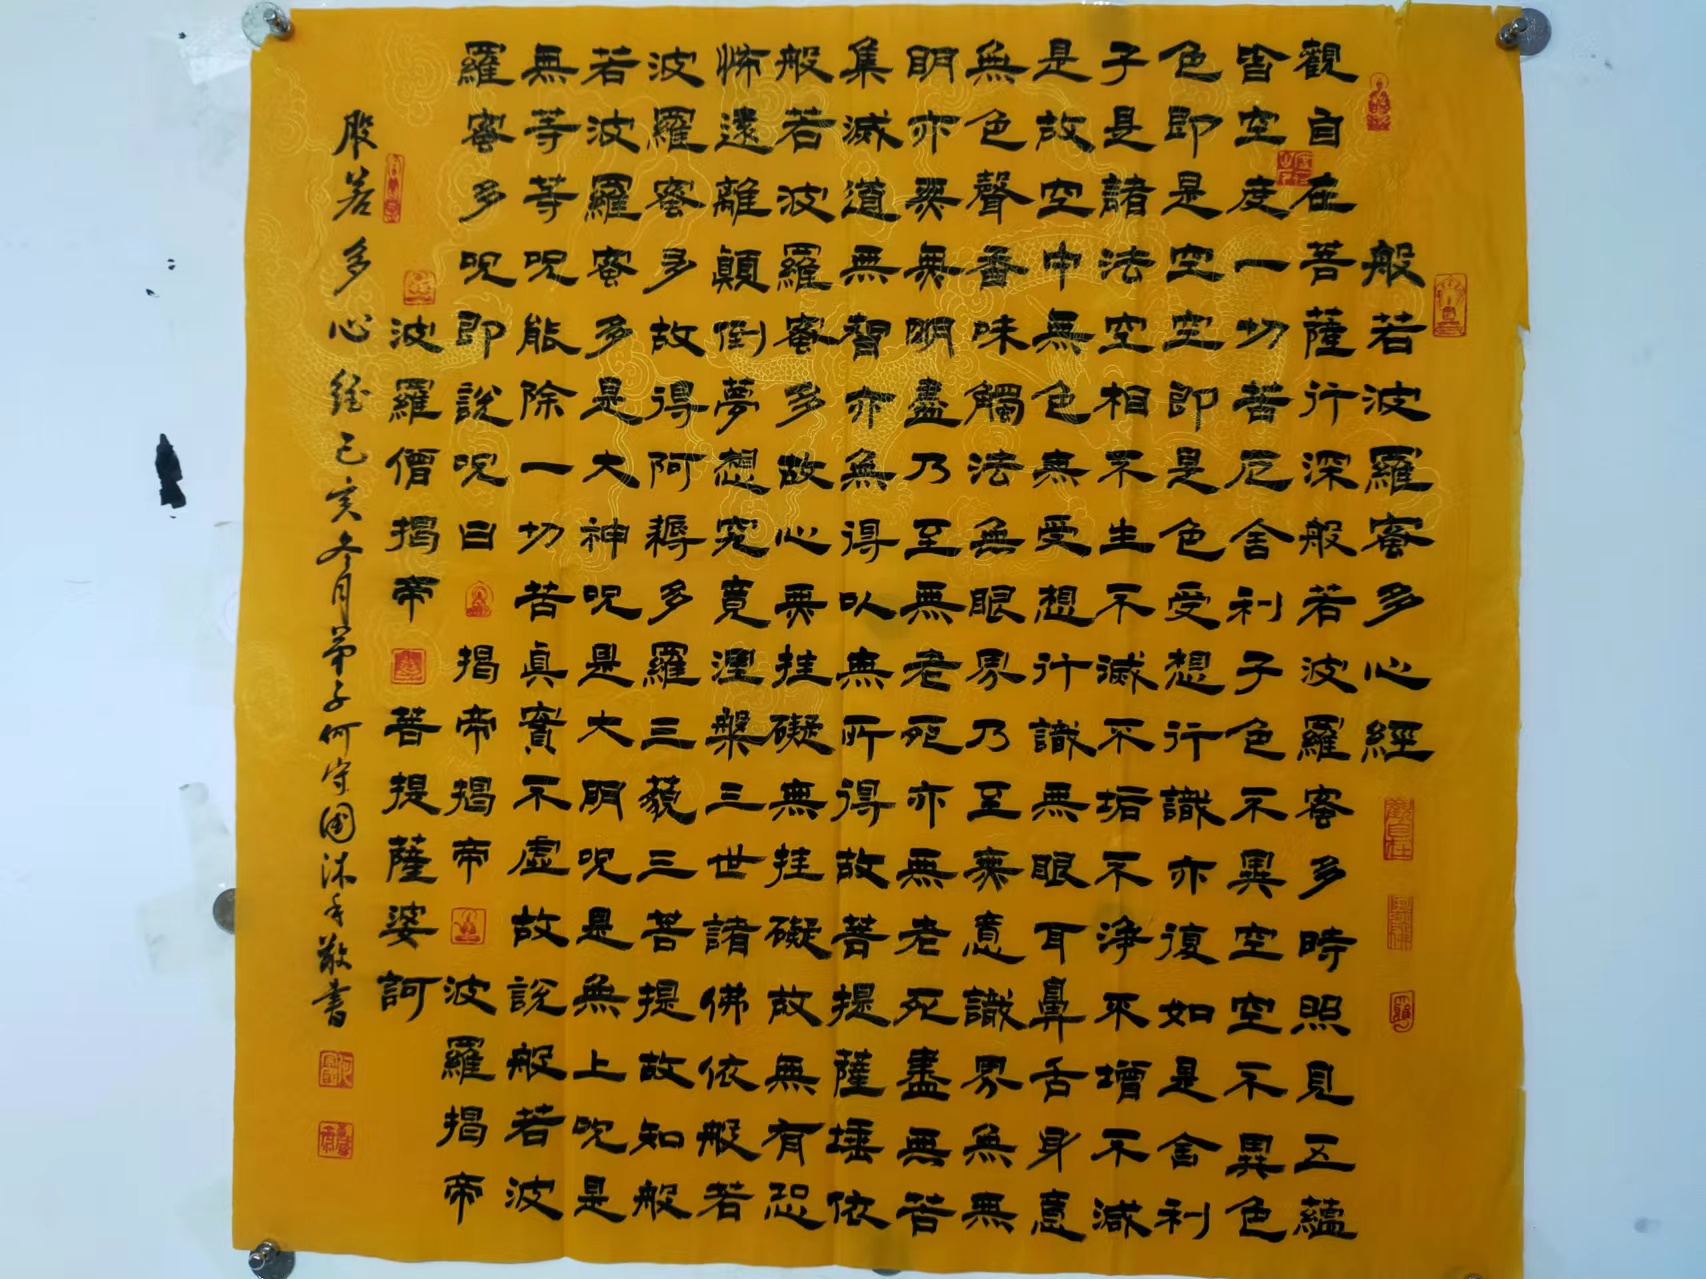 般若波羅蜜多心經
觀自在菩薩行深般若波羅蜜多時照見五蘊
皆空度一切苦厄舍利子色不異空空不異色
色即是空空即是色受想行識亦復如是舍利
子是諸法空相不生不滅不垢不淨不增不減
是故空中無色無受想行識無眼耳鼻舌身意
無色聲香味觸法無眼界乃至無意識界無無
明亦無無明盡乃至無老死亦無老死盡無苦
集滅道無智亦無得以無所得故菩提薩埵依
般若波羅蜜多故心無挂礙無挂礙故無有恐
怖遠離顛倒夢想究竟涅槃三世諸佛依般若
波羅蜜多故得阿耨多羅三藐三菩提故知般
若波羅蜜多是大神呪是大明呪是無上呪是
無等等呪能除一切苦真實不虛故說般若波
羅蜜多呪即說呪曰 揭帝揭帝 波羅揭帝
波羅僧揭帝 菩提薩婆訶
般若多心經己亥冬月弟子何守國沐手敬書
觀自在